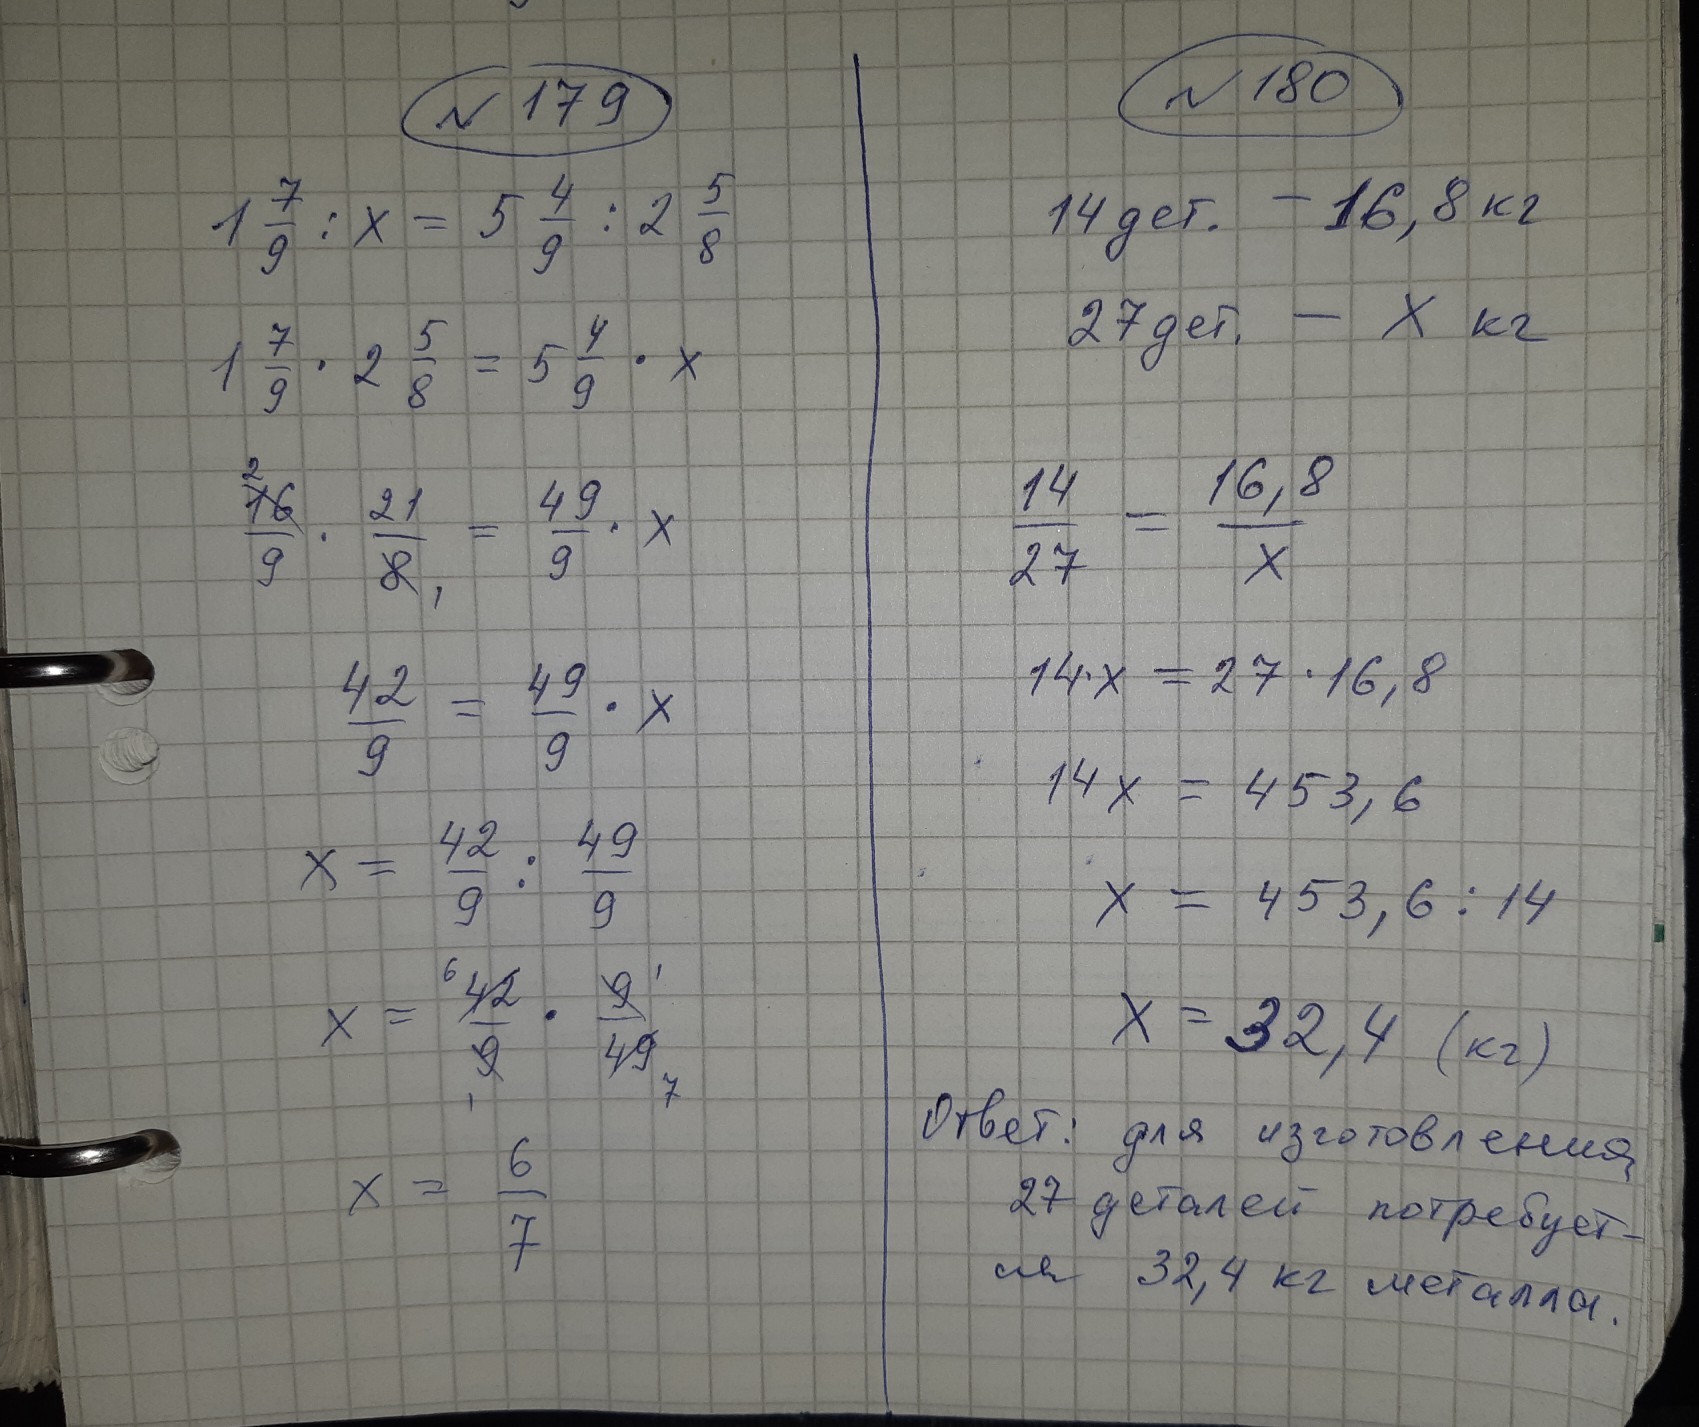 № 179
1 7/9 : x = 5 4/9 : 2 5/8
1 7/9 · 2 5/8 = 5 4/9 · x
2
16/9 · 21/8 = 49/9 · x
1
42/9 = 49/9 · x
x = 42/9 : 49/9
6 1
x = 42/9 · 9/49
1 7
x = 6/7
№ 180
14 дет. – 16,8 кг
27 дет. – x кг
14/27 = 16,8/x
14·x = 27·16,8
14x = 453,6
x = 453,6 : 14
x = 32,4 (кг)
Ответ: для изготовления
27 деталей потребует-
ся 32,4 кг металла.